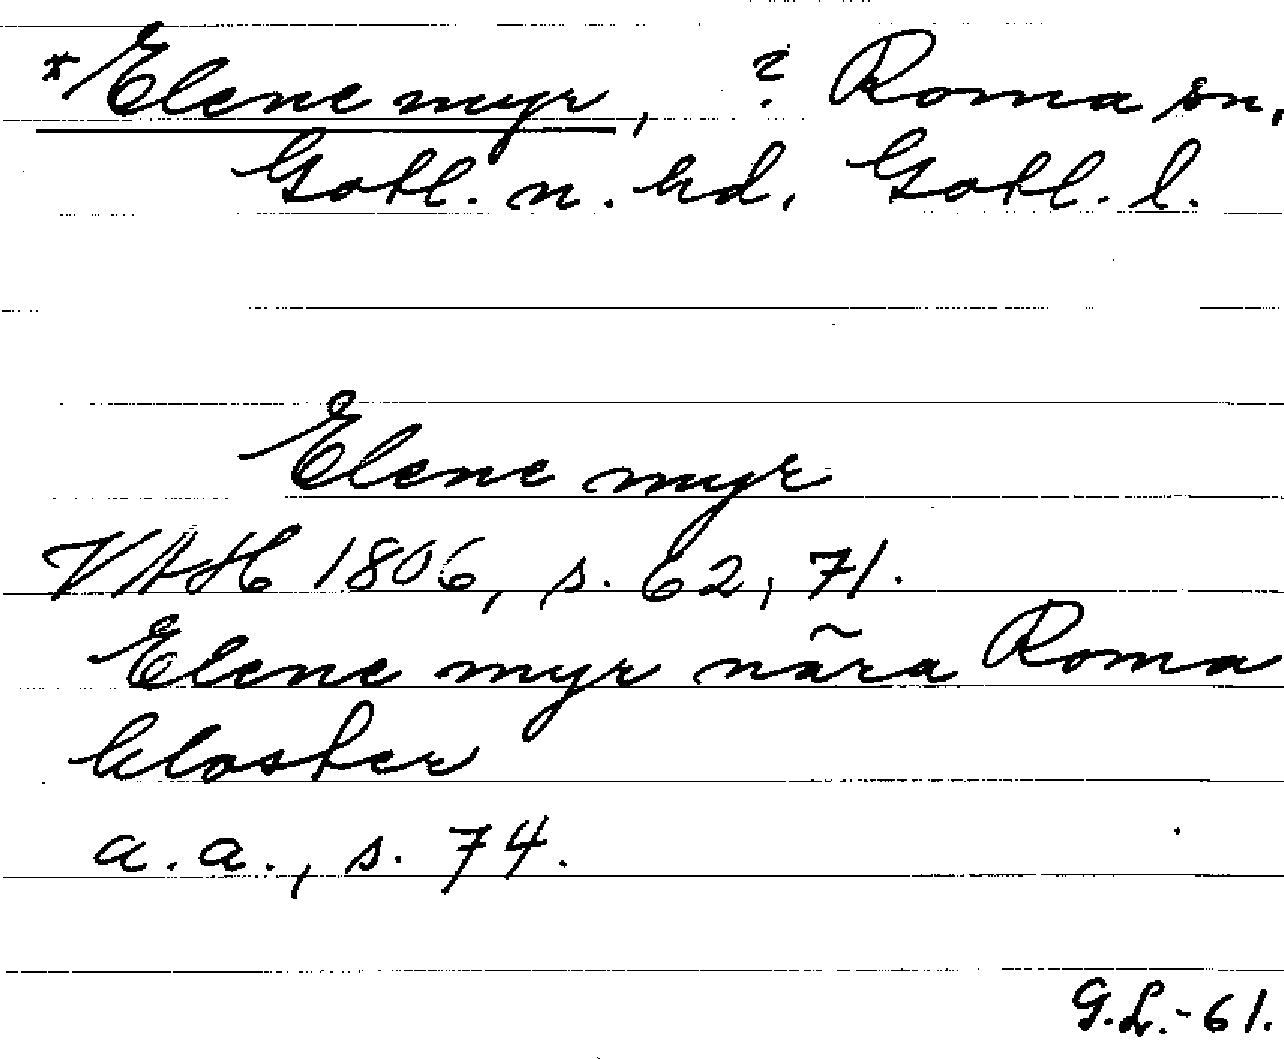 *Elene myr, ? Roma sn,
Gotl. n. hd, Gotl. l.
Elene myr
VAH 1806, s. 62, 71.
Elene myr nära Roma
kloster
a. a., s. 74.
G.L.-61.